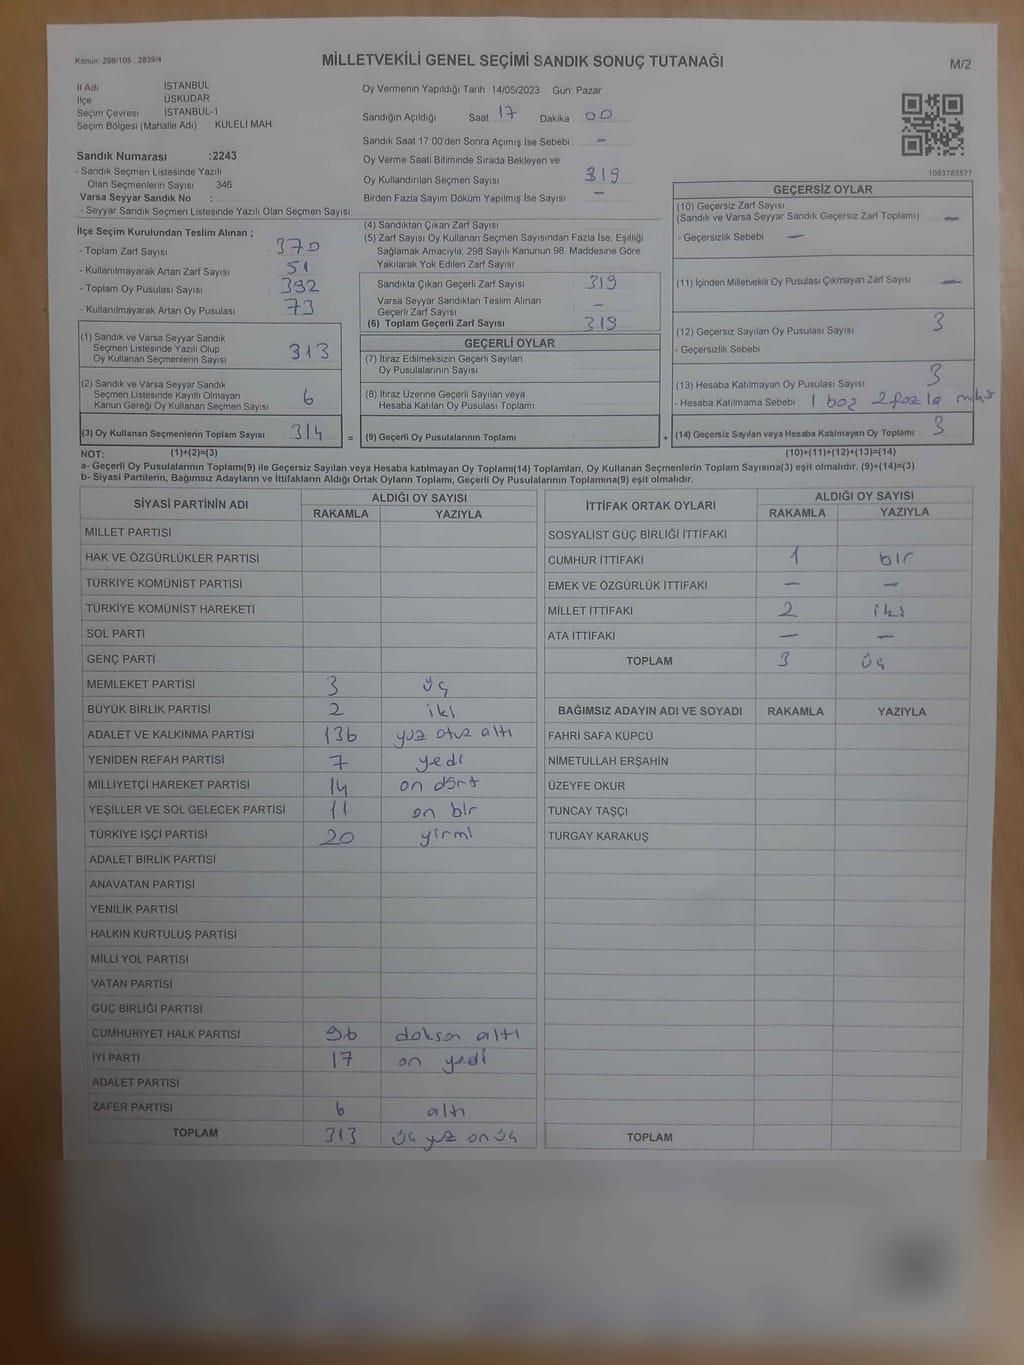 Kanun: 298/105 , 2839/4
MİLLETVEKİLİ GENEL SEÇİMİ SANDIK SONUÇ TUTANAĞI
M/2
İl Adı İSTANBUL
İlçe ÜSKÜDAR
Seçim Çevresi İSTANBUL-1
Seçim Bölgesi (Mahalle Adı) : KULELİ MAH.
Sandık Numarası :2243
- Sandık Seçmen Listesinde Yazılı
Olan Seçmenlerin Sayısı 346
Varsa Seyyar Sandık No :
- Seyyar Sandık Seçmen Listesinde Yazılı Olan Seçmen Sayısı:
Oy Vermenin Yapıldığı Tarih :14/05/2023 Gün: Pazar
Sandığın Açıldığı Saat 17 Dakika 00
Sandık Saat 17 00'den Sonra Açımış İse Sebebi : —
Oy Verme Saati Bitiminde Sırada Bekleyen ve
Oy Kullandırılan Seçmen Sayısı 319
Birden Fazla Sayım Döküm Yapılmış İse Sayısı —
1083783577
İlçe Seçim Kurulundan Teslim Alınan ;
- Toplam Zarf Sayısı : 370
- Kullanılmayarak Artan Zarf Sayısı : 51
- Toplam Oy Pusulası Sayısı : 392
- Kullanılmayarak Artan Oy Pusulası : 73
(1) Sandık ve Varsa Seyyar Sandık
Seçmen Listesinde Yazılı Olup
Oy Kullanan Seçmenlerin Sayısı : 313
(2) Sandık ve Varsa Seyyar Sandık
Seçmen Listesinde Kayıtlı Olmayan
Kanun Gereği Oy Kullanan Seçmen Sayısı : 6
(3) Oy Kullanan Seçmenlerin Toplam Sayısı : 314
(4) Sandıktan Çıkan Zarf Sayısı
(5) Zarf Sayısı Oy Kullanan Seçmen Sayısından Fazla İse, Eşitliği
Sağlamak Amacıyla, 298 Sayılı Kanunun 98. Maddesine Göre
Yakılarak Yok Edilen Zarf Sayısı
Sandıkta Çıkan Geçerli Zarf Sayısı : 319
Varsa Seyyar Sandıktan Teslim Alınan
Geçerli Zarf Sayısı : —
(6) Toplam Geçerli Zarf Sayısı : 319
GEÇERLİ OYLAR
(7) İtiraz Edilmeksizin Geçerli Sayılan
Oy Pusulalarının Sayısı :
(8) İtiraz Üzerine Geçerli Sayılan veya
Hesaba Katılan Oy Pusulası Toplamı :
= (9) Geçerli Oy Pusulalarının Toplamı :
GEÇERSİZ OYLAR
(10) Geçersiz Zarf Sayısı
(Sandık ve Varsa Seyyar Sandık Geçersiz Zarf Toplamı) : —
- Geçersizlik Sebebi : —
(11) İçinden Milletvekili Oy Pusulası Çıkmayan Zarf Sayısı : —
(12) Geçersiz Sayılan Oy Pusulası Sayısı : 3
- Geçersizlik Sebebi :
(13) Hesaba Katılmayan Oy Pusulası Sayısı : 3
- Hesaba Katılmama Sebebi : 1 boş 2 fazla
+ (14) Geçersiz Sayılan veya Hesaba Katılmayan Oy Toplamı : 3
NOT: (1)+(2)=(3) (10)+(11)+(12)+(13)=(14)
a- Geçerli Oy Pusulalarının Toplamı(9) ile Geçersiz Sayılan veya Hesaba katılmayan Oy Toplamı(14) Toplamları, Oy Kullanan Seçmenlerin Toplam Sayısına(3) eşit olmalıdır. (9)+(14)=(3)
b- Siyasi Partilerin, Bağımsız Adayların ve İttifakların Aldığı Ortak Oyların Toplamı, Geçerli Oy Pusulalarının Toplamına(9) eşit olmalıdır.
SİYASİ PARTİNİN ADI ALDIĞI OY SAYISI
RAKAMLA YAZIYLA
MİLLET PARTİSİ
HAK VE ÖZGÜRLÜKLER PARTİSİ
TÜRKİYE KOMÜNİST PARTİSİ
TÜRKİYE KOMÜNİST HAREKETİ
SOL PARTİ
GENÇ PARTİ
MEMLEKET PARTİSİ 3 üç
BÜYÜK BİRLİK PARTİSİ 2 iki
ADALET VE KALKINMA PARTİSİ 136 yüz otuz altı
YENİDEN REFAH PARTİSİ 7 yedi
MİLLİYETÇİ HAREKET PARTİSİ 14 on dört
YEŞİLLER VE SOL GELECEK PARTİSİ 11 on bir
TÜRKİYE İŞÇİ PARTİSİ 20 yirmi
ADALET BİRLİK PARTİSİ
ANAVATAN PARTİSİ
YENİLİK PARTİSİ
HALKIN KURTULUŞ PARTİSİ
MİLLİ YOL PARTİSİ
VATAN PARTİSİ
GÜÇ BİRLİĞİ PARTİSİ
CUMHURİYET HALK PARTİSİ 96 doksan altı
İYİ PARTİ 17 on yedi
ADALET PARTİSİ
ZAFER PARTİSİ 6 altı
TOPLAM 313 üç yüz on üç
İTTİFAK ORTAK OYLARI ALDIĞI OY SAYISI
RAKAMLA YAZIYLA
SOSYALİST GÜÇ BİRLİĞİ İTTİFAKI
CUMHUR İTTİFAKI 1 bir
EMEK VE ÖZGÜRLÜK İTTİFAKI — —
MİLLET İTTİFAKI 2 iki
ATA İTTİFAKI — —
TOPLAM 3 üç
BAĞIMSIZ ADAYIN ADI VE SOYADI RAKAMLA YAZIYLA
FAHRİ SAFA KÜPCÜ
NİMETULLAH ERŞAHİN
ÜZEYFE OKUR
TUNCAY TAŞÇI
TURGAY KARAKUŞ
TOPLAM